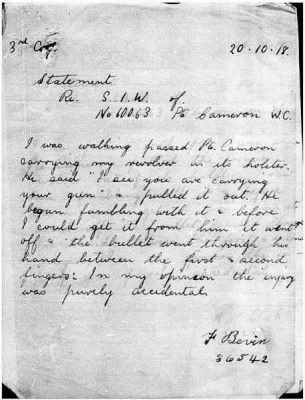 3rd Coy. 20-10-18.
Statement
Re. S.I.W. of
No 60063 Pte Cameron W.C.
I was walking passed Pte. Cameron
carrying my revolver in its holster.
He said "I see you are carrying
your gun" & pulled it out. He
began fumbling with it & before
I could get it from him it went
off & the bullet went through his
hand between the first & second
fingers: In my opinion the injury
was purely accidental.
F Bevin
36542